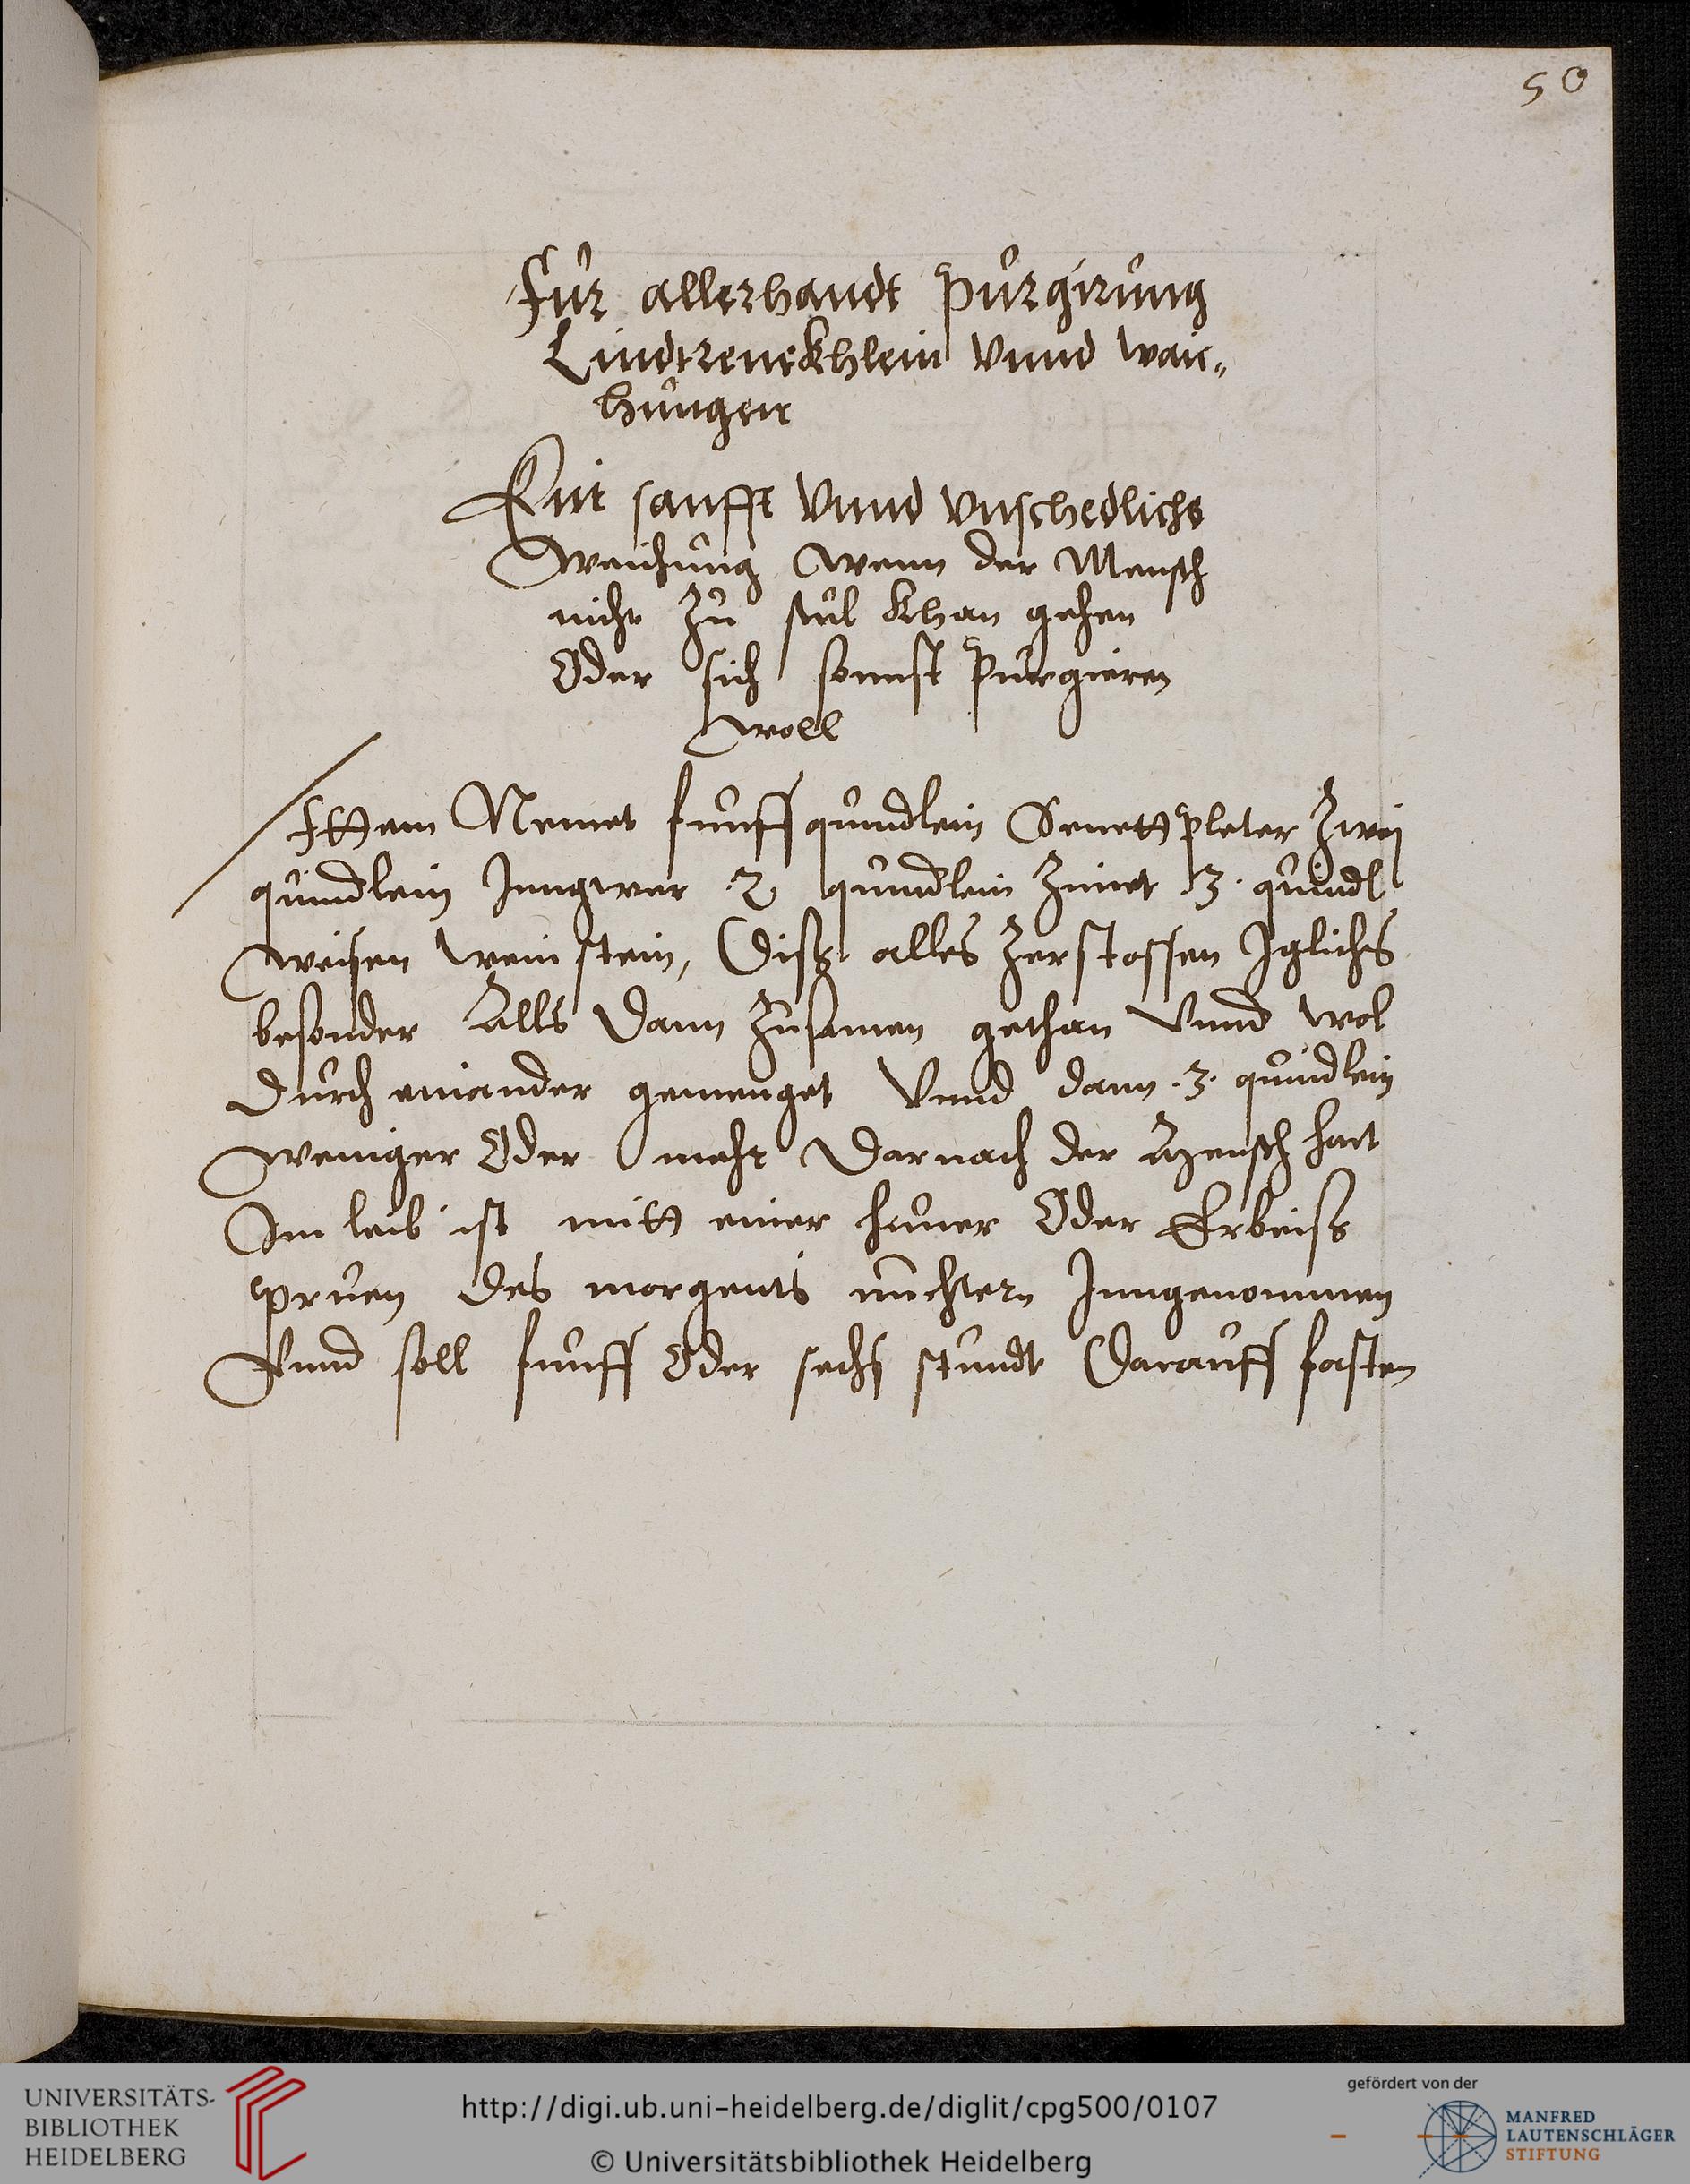 50
Für allerhandt Purgirung
Lindtrenckhlein Vnnd waic„
hungen
Ein sanfft Vnnd Vnschedlichs
Waichung Wenn der Mensch
nicht Zu stul khan gehen
Oder sich sonnst Purgieren
Woll
Ittem Nemet funff quindlein Senett pleter Zwej
quindlein Inngwer 2 quindlein Zimet .3. quindl
Weisen Wein stein, Diß alles Zerstossen Iglichs
besonder Alls Dann Zusamen gethan Vnnd Wol
Durch einander gemenget Vnnd dann .3. quindlein
Weniger Oder mehr Darnach der Mensch hart
Im leib ist mitt einer huner Oder Erbeiß
pruen Des morgents nuchtern Inngenommen
Vnnd soll funff Oder sechs stundt Darauff fasten
UNIVERSITÄTS-
BIBLIOTHEK
HEIDELBERG
http://digi.ub.uni-heidelberg.de/diglit/cpg500/0107
© Universitätsbibliothek Heidelberg
gefördert von der
MANFRED
LAUTENSCHLÄGER
STIFTUNG